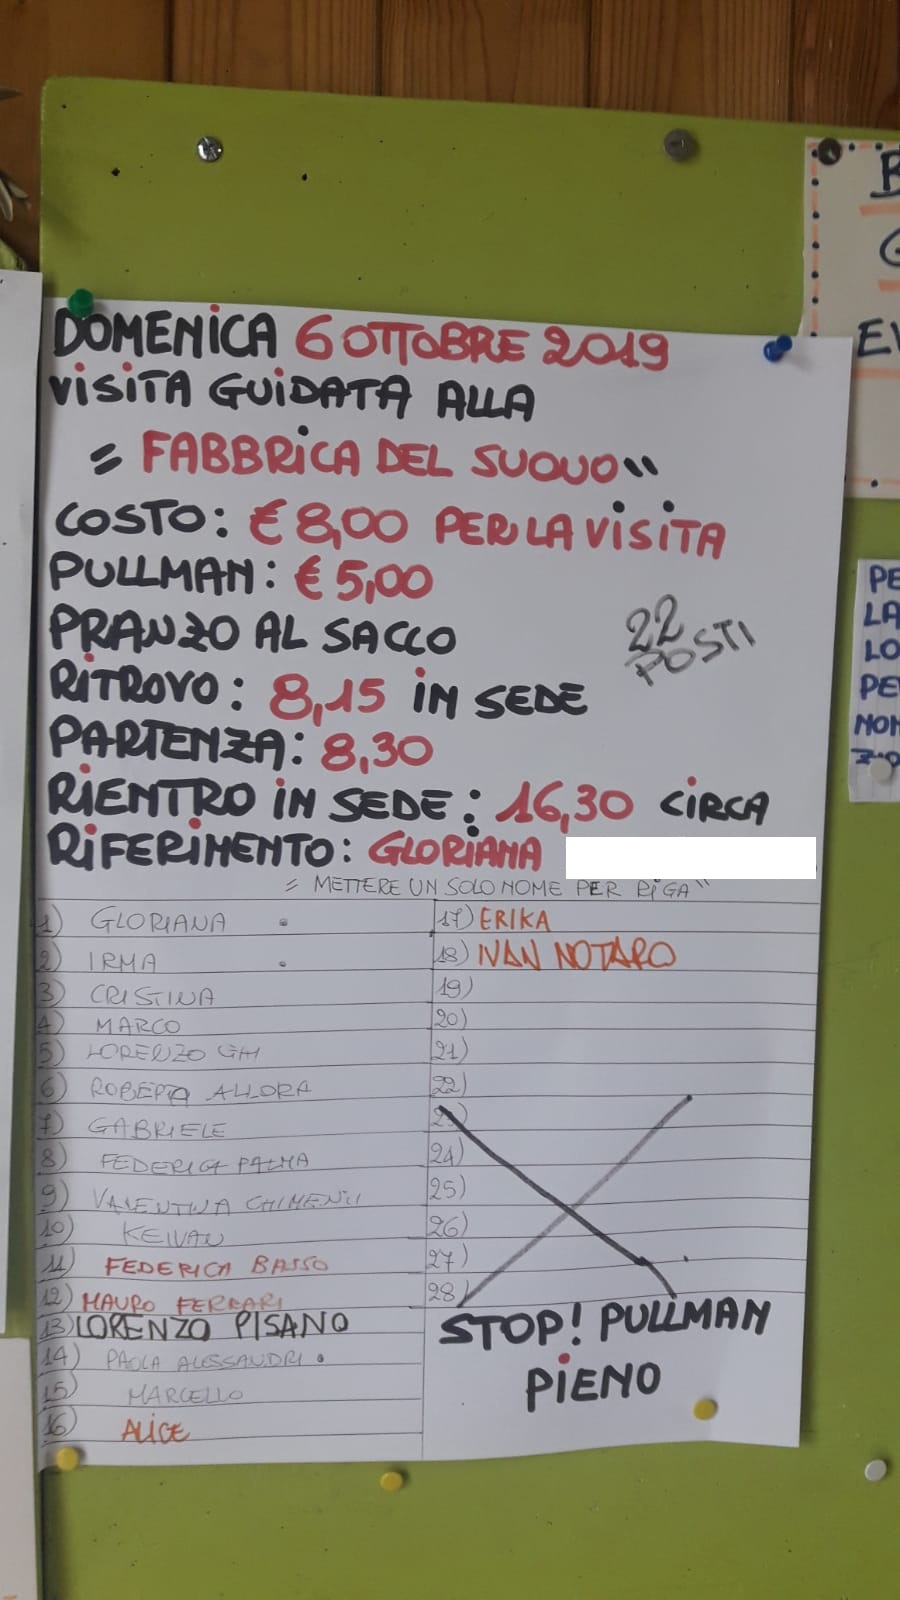 DOMENICA 6 OTTOBRE 2019
VISITA GUIDATA ALLA
" FABBRICA DEL SUOUO "
COSTO: € 8,00 PER LA VISITA
PULLMAN: € 5,00
PRANZO AL SACCO
22 POSTI
RITROVO: 8,15 IN SEDE
PARTENZA: 8,30
RIENTRO IN SEDE: 16,30 CIRCA
RIFERIMENTO: GLORIANA
" METTERE UN SOLO NOME PER RIGA "
1) GLORIANA
2) IRMA
3) CRISTINA
4) MARCO
5) LORENZO GHI
6) ROBERTA ALLORA
7) GABRIELE
8) FEDERICA PALMA
9) VALENTINA CHIMENTI
10) KEIVAN
11) FEDERICA BASSO
12) MAURO FERRARI
13) LORENZO PISANO
14) PAOLA ALESSANDRI
15) MARCELLO
16) ALICE
17) ERIKA
18) IVAN NOTARO
19)
20)
21)
22)
23)
24)
25)
26)
27)
28)
STOP! PULLMAN
PIENO
PE
LA
LO
PE
NON
EV